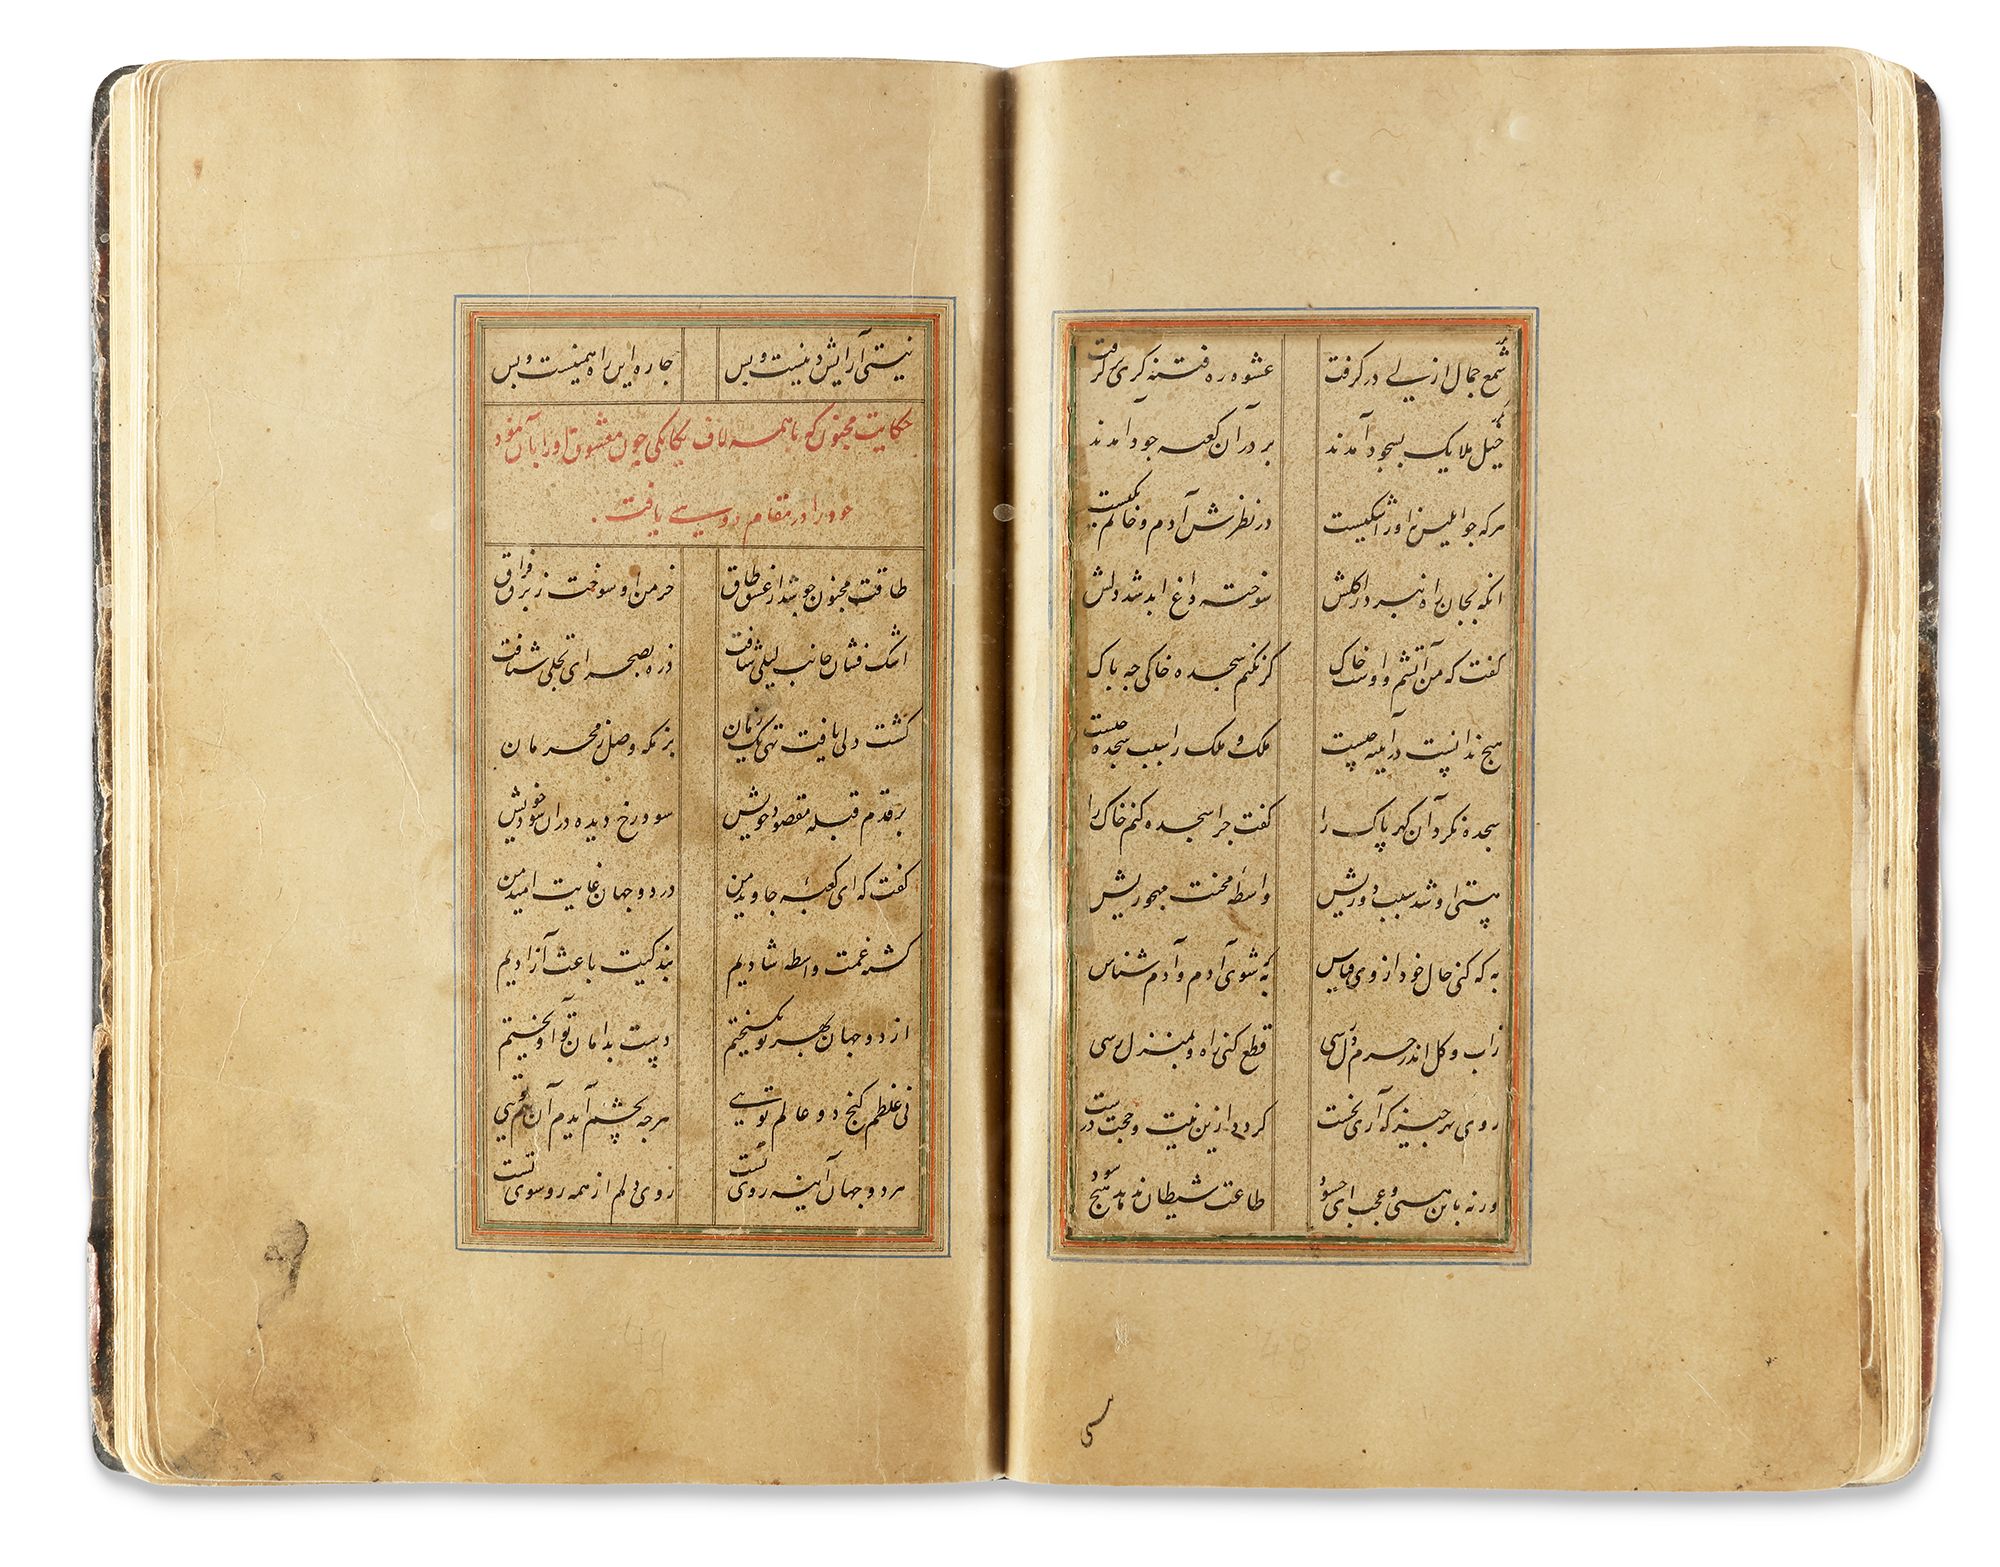 شمع جمال ازلی در گرفت عشوه ره فتنه گری بر گرفت
خیل ملایک بسجود آمدند بر در آن کعبه جود آمدند
هرکه چو ابلیس نزاورا شکیست در نظرش آدم و خاکم یکیست
آنکه بجان راه نبرد از گلش سوخته داغ ابد شد دلش
گفت که من آتشم و اوست خاک گر نکنم سجده خاکی چه باک
هیچ ندانست در آیینه چیست ملک و ملک را سبب سجده چیست
سجده نکرد آن گهر پاک را گفت چرا سجده کنم خاک را
هستی او شد سبب دوریش واسطه محنت مهجوریش
به که کنی حال خود از وی قیاس به شوی آدم و آدم شناس
زاب و گل اندر حرم دل رسی قطع کنی راه و بمنزل رسی
روی بهر چیز که آری نخست گردد ازین نیت و حجت درست
ورنه باین هستی و عجب ای حسود طاعت شیطان ندهد هیچ سود
سی
48
نیستی آرایش دینست و بس چاره این راه همینست و بس
حکایت مجنون که با همه لاف یگانگی چون معشوق او را بآن نمود
خود را در مقام دویی یافت
طاقت مجنون چو شد از عشق طاق خرمن او سوخت ز برق فراق
اشک فشان جانب لیلی شتافت ذره بصحرای تجلی شتافت
گشت دلی یافت تهی یک زمان بزمگه وصل ز محرمان
بر قدم قبله مقصود خویش سود رخ دیده در آن سود خویش
گفت که ای کعبه جاوید من در دو جهان غایت امید من
گشته غمت واسطه شادیم بندگیت باعث آزادیم
از دو جهان بهر تو بگسیختم دست بدامان تو آویختم
نی غلطم گنج دو عالم تویی هرچه بچشم آیدم آن هم تویی
هر دو جهان آینه روی تست روی دلم از همه رو سوی تست
49